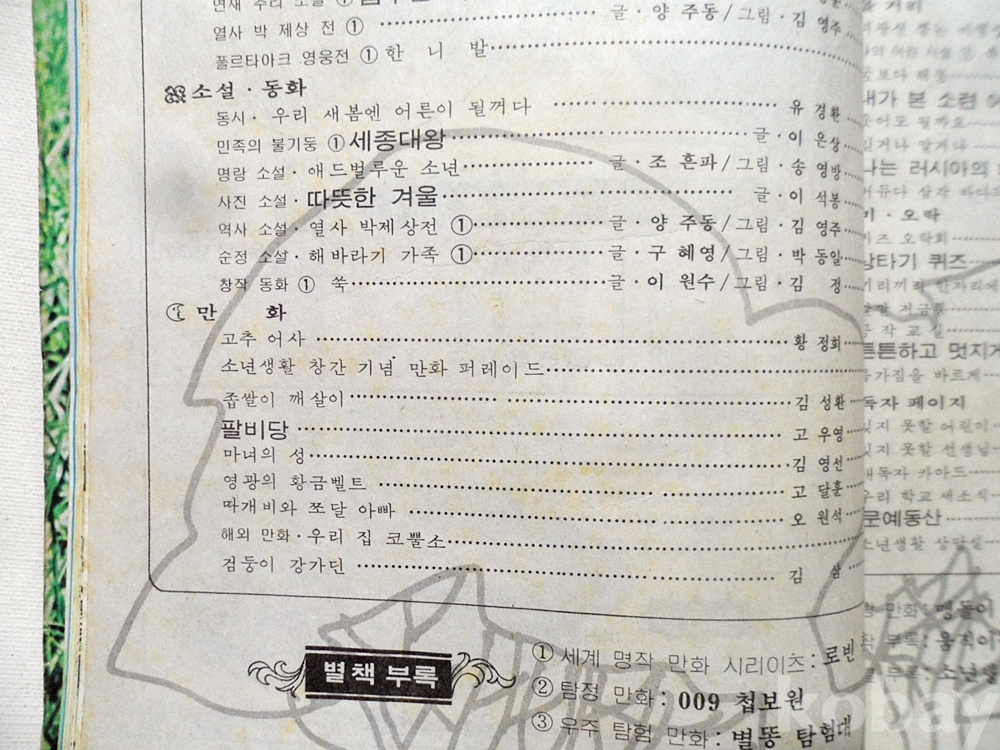 연재 추리 소설 ①
열사 박 제상 전 ① 글·양 주동/그림·김 영주
풀르타아크 영웅전 ① 한 니 발
소설·동화
동시· 우리 새봄엔 어른이 될꺼다 유 경환
민족의 불기둥 ① 세종대왕 글·이 은상
명랑 소설· 애드벌루운 소년 글·조 흔파/그림·송 영방
사진 소설· 따뜻한 겨울 글·이 석봉
역사 소설· 열사 박제상전 ① 글·양 주동/그림·김 영주
순정 소설· 해바라기 가족 ① 글·구 혜영/그림·박 동일
창작 동화 ① 쑥 글·이 원수/그림·김 정
만 화
고추 어사 황 정희
소년생활 창간 기념 만화 퍼레이드
좁쌀이 깨살이 김 성환
팔비당 고 우영
마녀의 성 김 영선
영광의 황금벨트 고 달훈
따개비와 쪼달 아빠 오 원석
해외 만화·우리 집 코뿔소
검둥이 강가딘 김 삼
별책 부록
① 세계 명작 만화 시리이즈: 로빈
② 탐정 만화: 009 첩보원
③ 우주 탐험 만화: 별똥 탐험대
내가 본 소련
나는 러시아의
미·오락
퀴즈 오락회
상타기 퀴즈
공작 교실
튼튼하고 멋지게
몸가짐을 바르게
독자 페이지
잊지 못할 어린이
잊지 못할 선생님
애독자 카아드
우리 학교 새소식
문예동산
소년생활 상담실
만화: 맹돌이
부록: 움직이
부록: 소년생
kobay